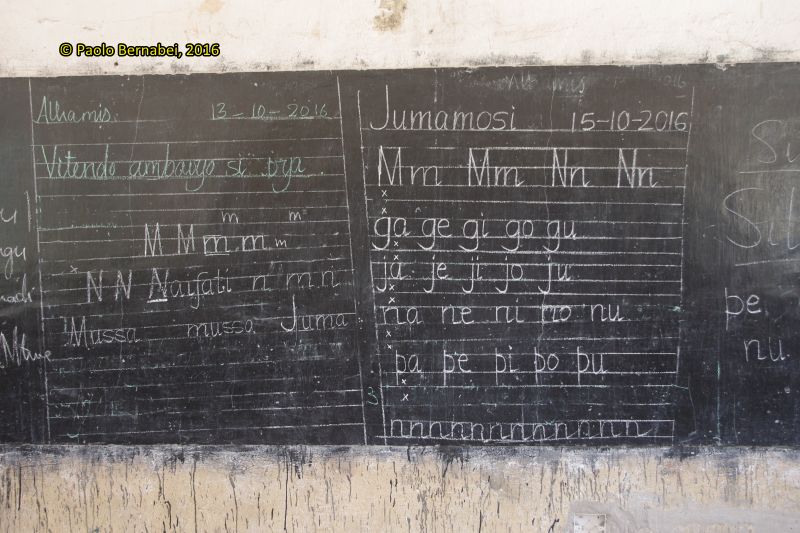 © Paolo Bernabei, 2016
Alhamis. 13-10-2016
Vitendo ambavyo si
m m
M M m m m
N N Naifati n m n
Mussa mussa Juma
Jumamosi 15-10-2016
Mm Mm Nn Nn
ga ge gi go gu
ja je ji jo ju
na ne ni no nu
pa pe pi po pu
3
nnnnnnnnnnnnn
pe
nu